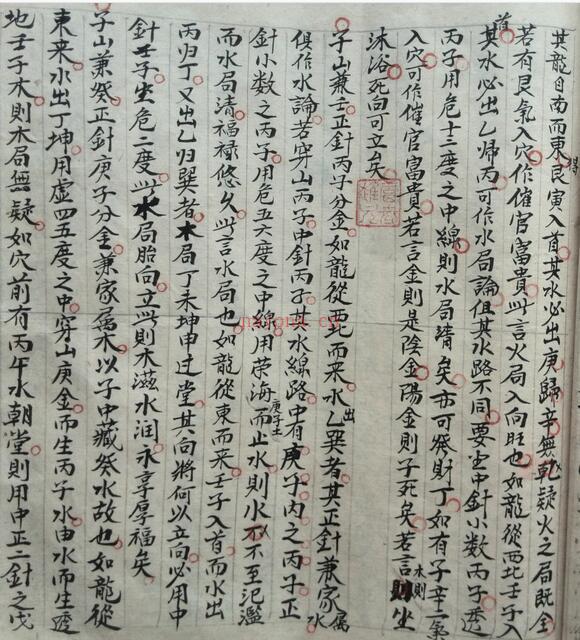 其龍自南而東艮寅入首其水必出庚歸辛無乾疑火之局既全
若有艮氣入穴作催官富貴此言火局入向旺也如龍從西北壬子入
首其水必出乙歸丙可作水局論但其水路不同要坐中針小数丙子透
丙子用危十三度之中線則水局清矣亦可發財丁如有子辛二氣
入穴可作催官富貴若言金則是陰金陽金則子死矣若言水則坐
沐浴死向可立矣
子山兼壬正針丙子分金如龍從西北而来水出乙巽者其正針兼家属水
俱作水論若穿山丙子中針丙子其水線路中有庚子内之丙子正
針小数之丙子用危五六度之中線用荣海庚子土而止水則水不至氾濫
而水局清福禄悠久此言水局也如龍從東而来壬子入首而水出
丙归丁又出乙归巽者木局丁未坤申过堂其向将何以立向必用中
針壬子坐危二度此水局胎向立此則木滋水润永享厚福矣
子山兼癸正針庚子分金兼家属木以子中藏癸水故也如龍從
東来水出丁坤用虚四五度之中穿山庚金而生丙子水由水而生透
地壬子木則木局無疑如穴前有丙午水朝堂則用中正二針之戊